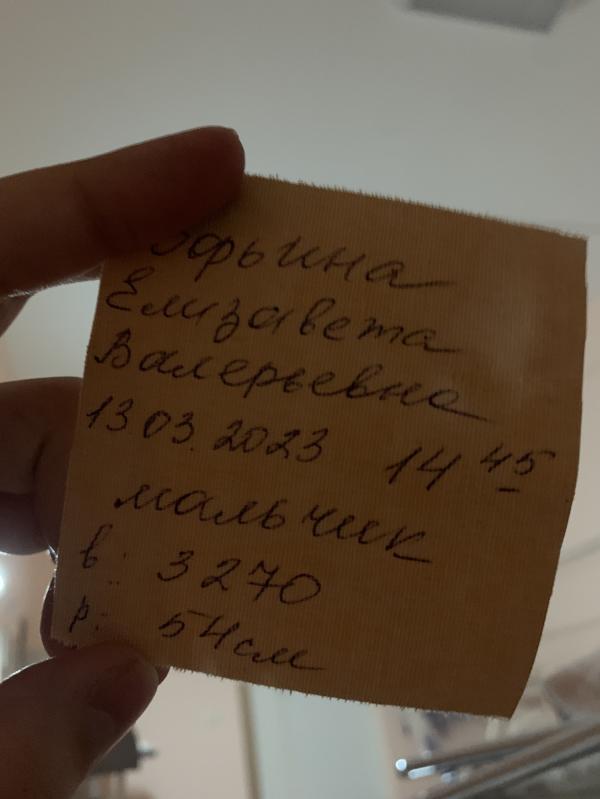 Елизавета
Валерьевна
13.03.2023 14 45
мальчик
в: 3270
р: 54см